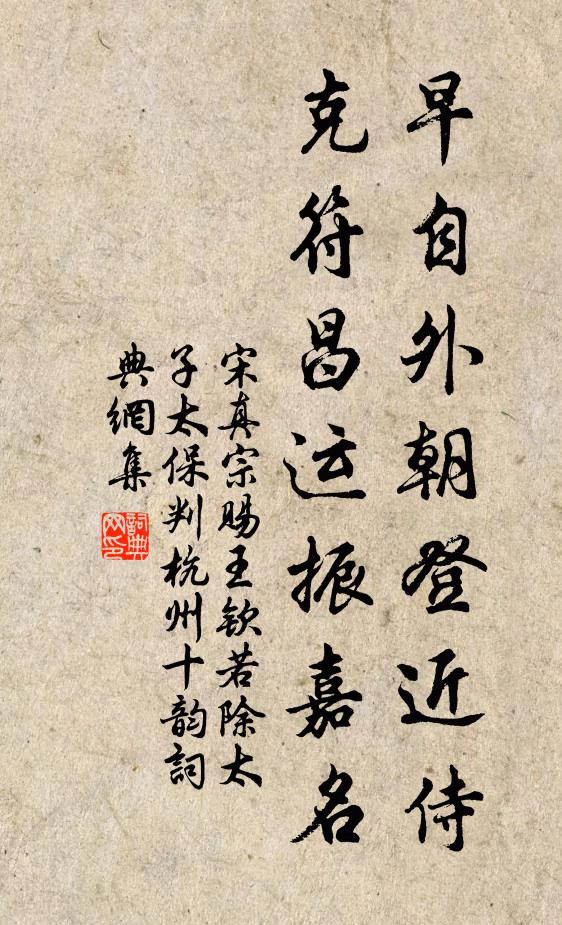 早自外朝登近侍
克符昌运振嘉名
宋真宗赐王钦若除太
子太保判杭州十韵詞
典網集
詞典
网印